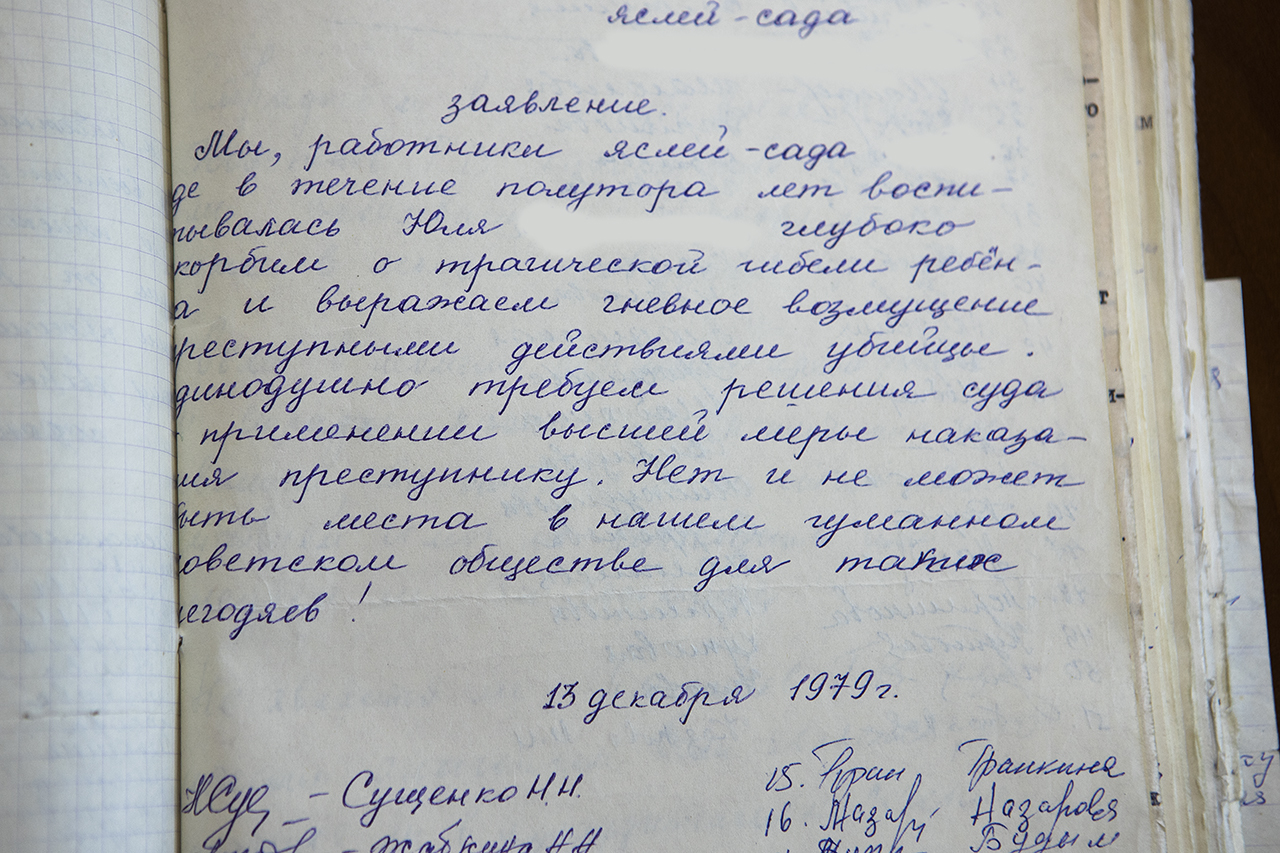 яслей-сада
заявление.
Мы, работники яслей-сада
де в течение полутора лет воспи-
тывалась Юля глубоко
корбим о трагической гибели ребён-
а и выражаем гневное возмущение
реступными действиями убийцы.
динодушно требуем решения суда
применении высшей меры наказа-
ия преступнику. Нет и не может
быть места в нашем гуманном
оветском обществе для таких
егодяев!
13 декабря 1979 г.
- Сущенко Н.Н.
- Жабкина Н.Н.
15. Трапкина
16. Назар Назаровя